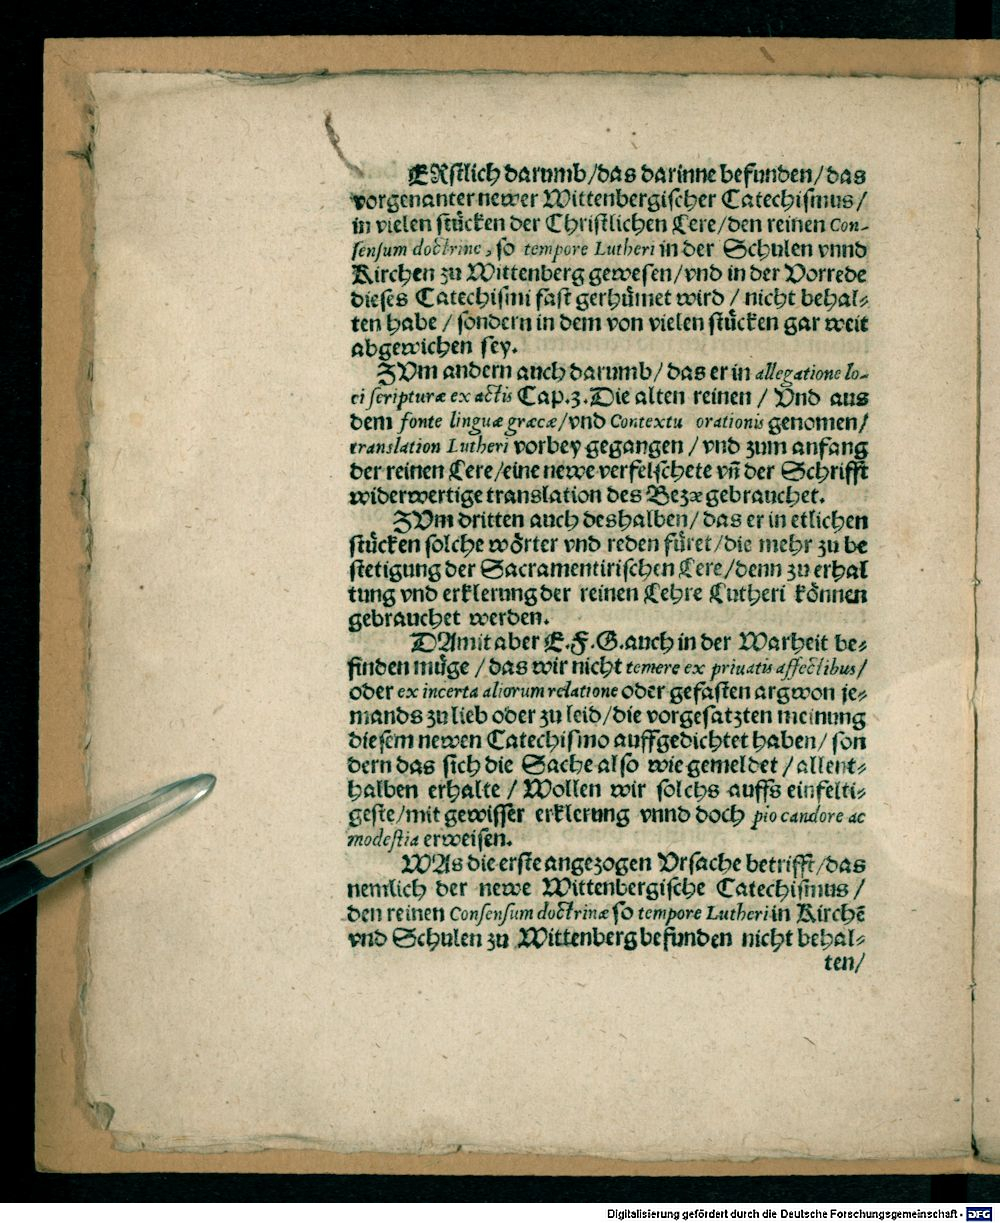 ERstlich darumb/das darinne befunden/das
vorgenanter newer Wittenbergischer Catechismus/
in vielen stücken der Christlichen Lere/den reinen Con-
sensum doctrine, so tempore Lutheri in der Schulen vnnd
Kirchen zu Wittenberg gewesen/vnd in der Vorrede
dieses Catechismi fast gerhümet wird / nicht behal-
ten habe / sondern in dem von vielen stücken gar weit
abgewichen sey.
ZVm andern auch darumb/ das er in allegatione lo-
ci scripturæ ex actis Cap.3. Die alten reinen / Vnd aus
dem fonte linguæ græcæ/vnd Contextu orationis genomen/
translation Lutheri vorbey gegangen / vnd zum anfang
der reinen Lere/eine newe verfelschete vñ der Schrifft
widerwertige translation des Bezæ gebrauchet.
ZVm dritten auch deshalben/ das er in etlichen
stücken solche wörter vnd reden füret/die mehr zu be
stetigung der Sacramentirischen Lere/denn zu erhal
tung vnd erklerung der reinen Lehre Lutheri können
gebrauchet werden.
DAmit aber E.F.G.auch in der Warheit be-
finden müge / das wir nicht temere ex priuatis affectibus/
oder ex incerta aliorum relatione oder gefasten argwon je-
mands zu lieb oder zu leid/die vorgesatzten meinung
diesem newen Catechismo auffgedichtet haben/ son
dern das sich die Sache also wie gemeldet / allent-
halben erhalte / Wollen wir solchs auffs einfelti-
geste/mit gewisser erklerung vnnd doch pio candore ac
modestia erweisen.
WAs die erste angezogen Vrsache betrifft/das
nemlich der newe Wittenbergische Catechismus /
den reinen Consensum doctrinæ so tempore Lutheri in Kirchē
vnd Schulen zu Wittenberg befunden nicht behal-
ten/
Digitalisierung gefördert durch die Deutsche Forschungsgemeinschaft - DFG